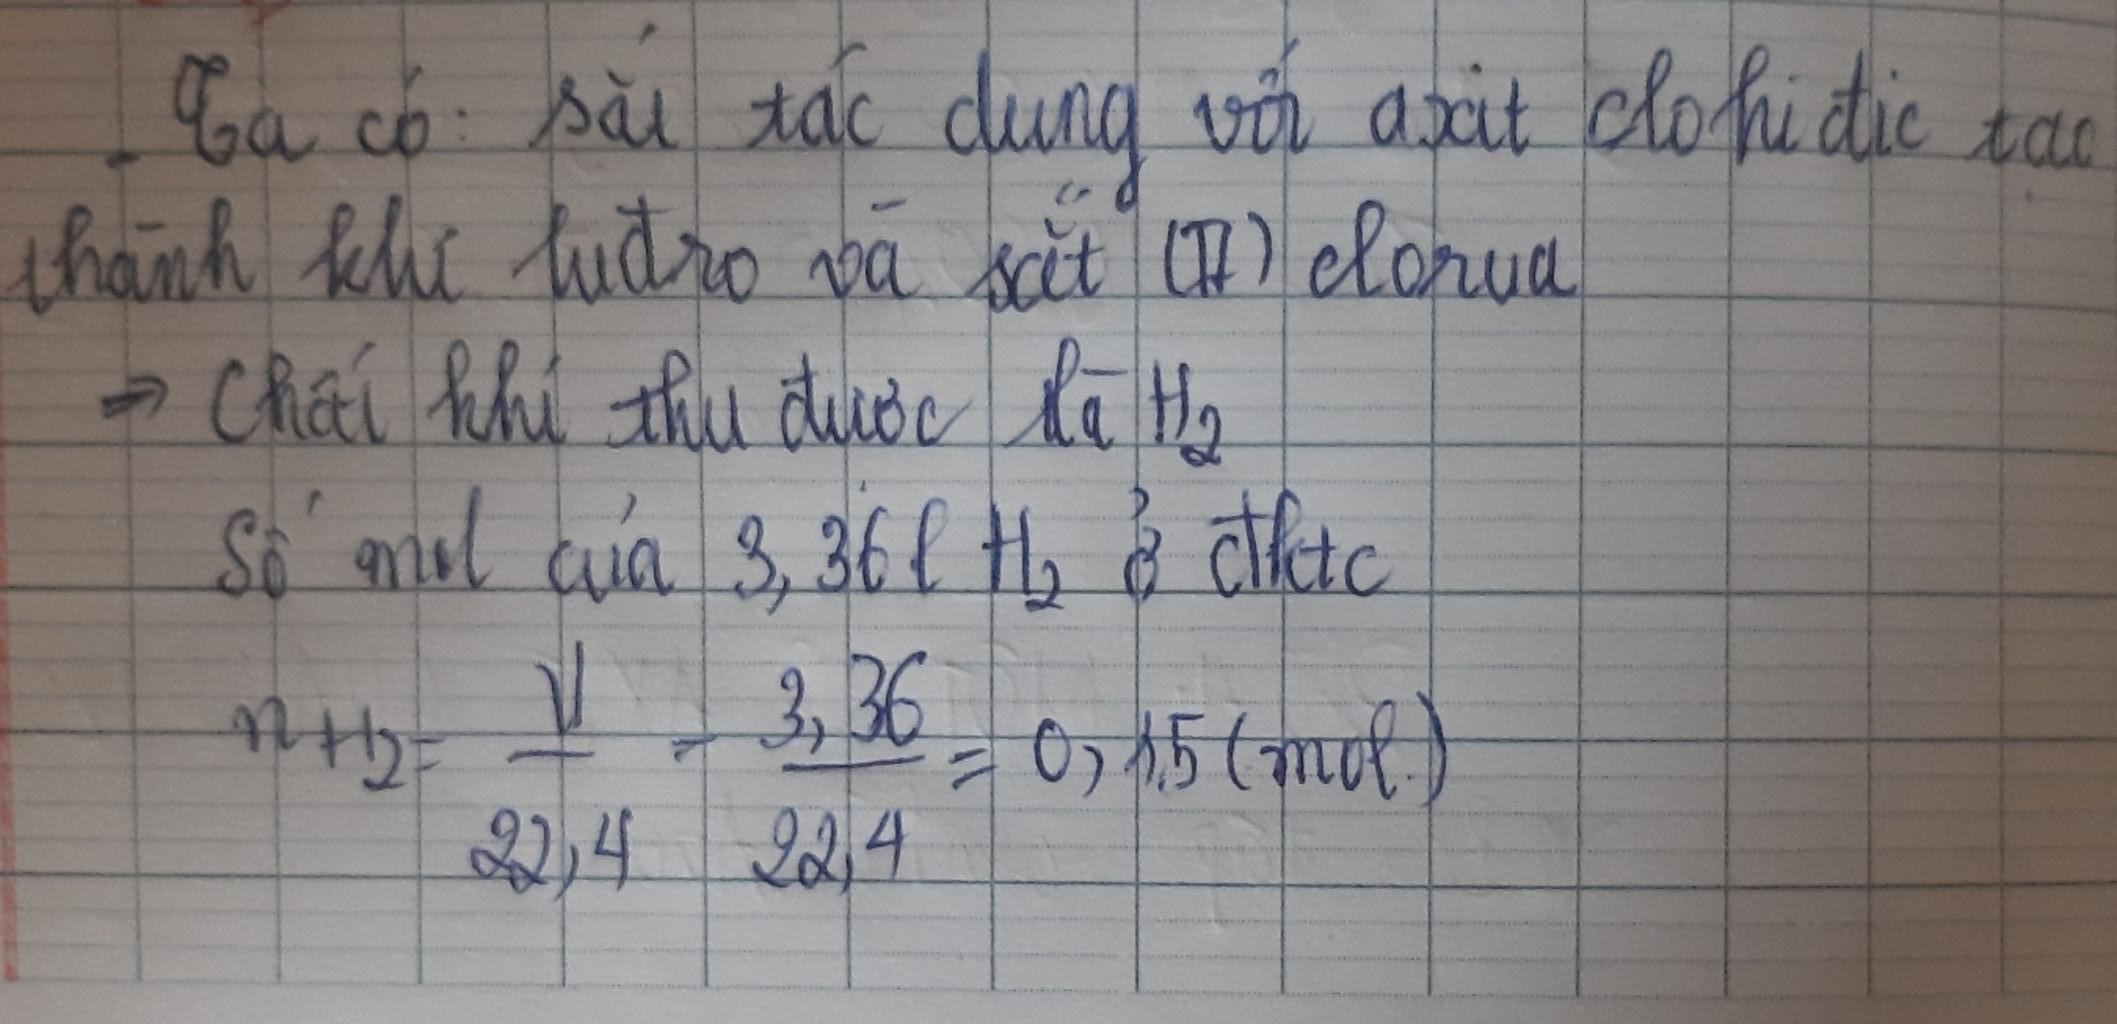 - Ta có: sắt tác dụng với axit clohiđic tạo
thành khí hiđro và sắt (II) clorua
⇒ Chất khí thu được là H₂
Số mol của 3,36l H₂ ở đktc
nH₂ = V/22,4 = 3,36/22,4 = 0,15 (mol)